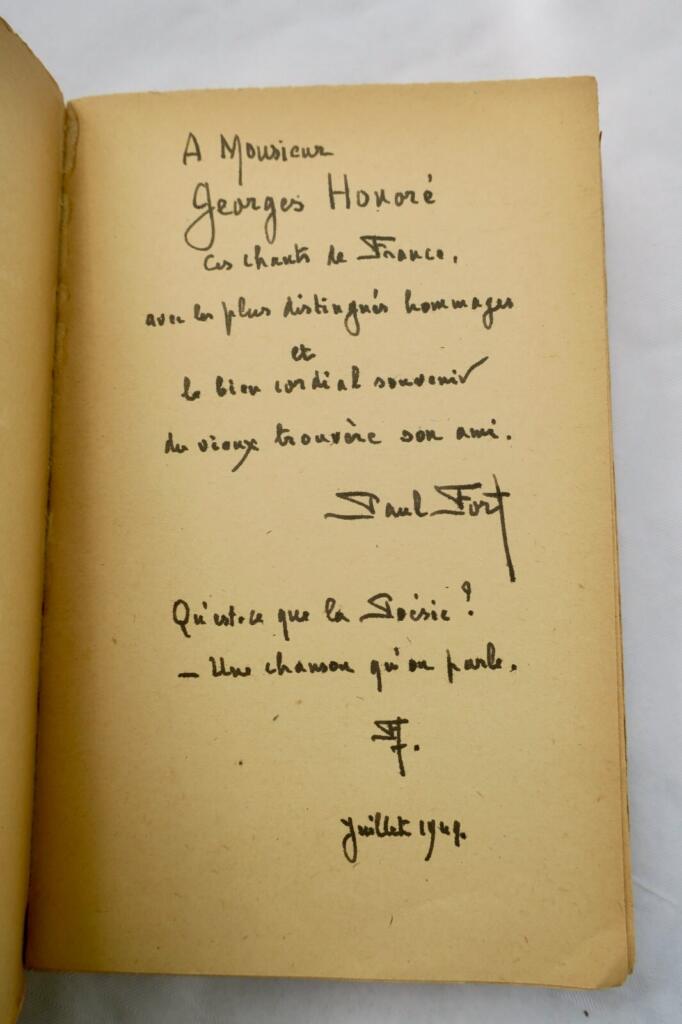 A Monsieur
Georges Honoré
ces chants de France,
avec les plus distingués hommages
et
le bien cordial souvenir
du vieux trouvère son ami.
Paul Fort
Qu'est-ce que la Poésie?
— Une chanson qu'on parle.
PF.
Juillet 1949.